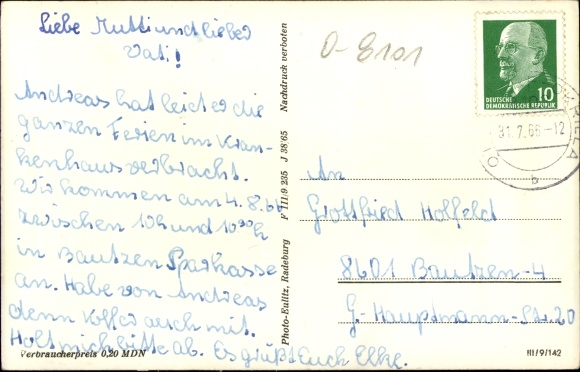 Liebe Mutti und lieber
Vati!
Andreas hat leider die
ganzen Ferien im Kran-
kenhaus verbracht.
Wir kommen am 4.8.66
zwischen 10h und 10³⁰h
in Bautzen Sparkasse
an. Habe von Andreas
denn Koffer auch mit.
Holt mich bitte ab. Es grüßt Euch Elke.
Verbraucherpreis 0,20 MDN
Photo-Eulitz, Radeburg F III/9 225 J 38/65 Nachdruck verboten
O-8101
10
DEUTSCHE
DEMOKRATISCHE REPUBLIK
31.7.66-12
b
An
Gottfried Holfeld
8601 Bautzen-4
G.-Hauptmann-Str. 20
III/9/142